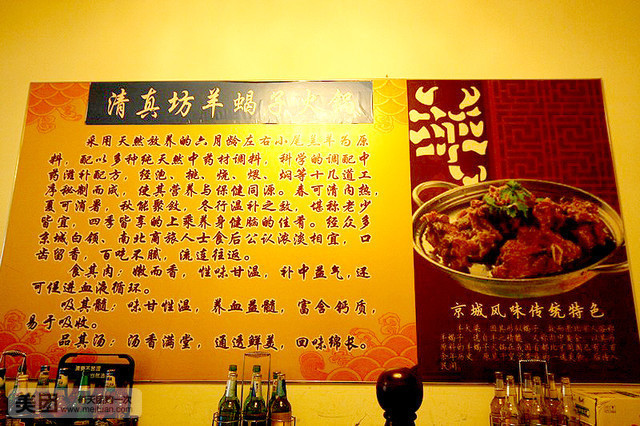 清真坊羊蝎子火锅
采用天然放养的六月龄左右小尾羔羊为原
料，配以多种纯天然中药材调料，科学的调配中
药滋补配方，经泡、挑、烧、煨、焖等十几道工
序秘制而成，使其营养与保健同源。春可清内热，
夏可消暑，秋能聚敛，冬行温补之效，堪称老少
皆宜，四季皆享的上乘养身健脑的佳肴。经众多
京城白领、南北商旅人士食后公认浓淡相宜，口
齿留香，百吃不腻，流连往返。
食其肉：嫩而香，性味甘温，补中益气，还
可促进血液循环。
吸其髓：味甘性温，养血益髓，富含钙质，
易于吸收。
品其汤：汤香满堂，通透鲜美，回味绵长。
京城风味传统特色
美团
www.meituan.com